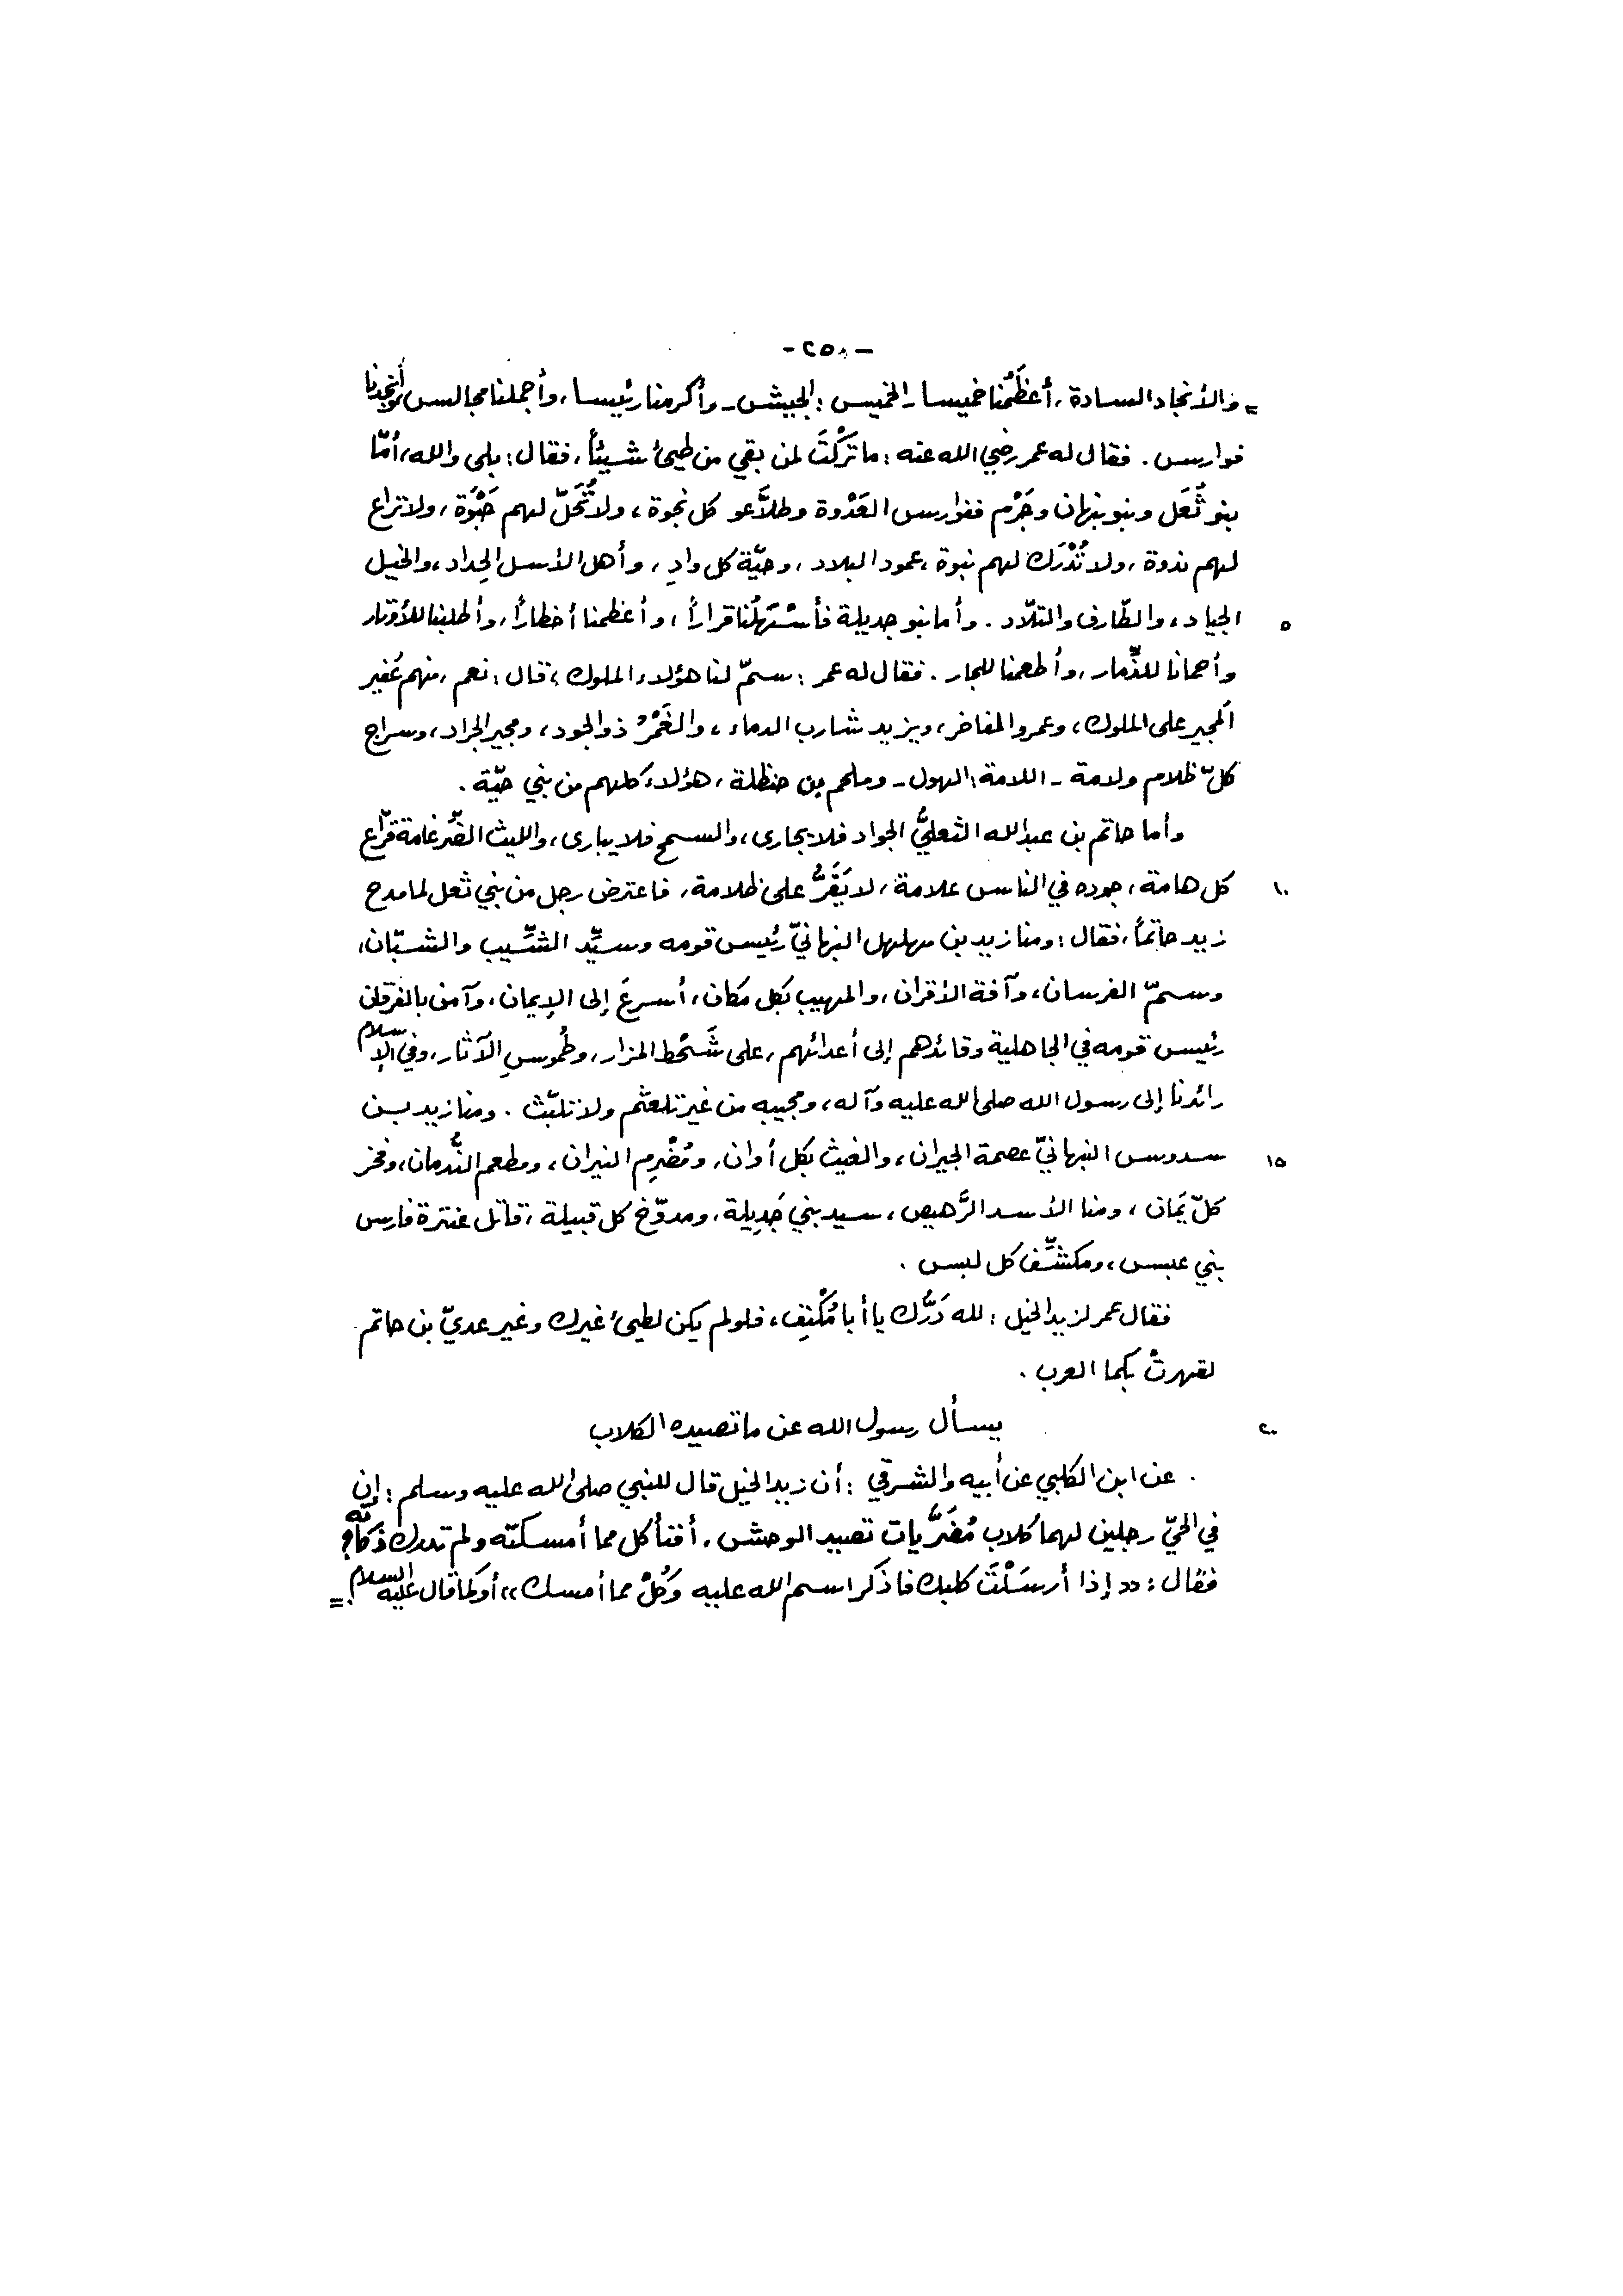 -٢٥٨-
= فالأنجاد السادة، أعظَمُنا خميسا -الخميس: الجيش- وأكرمنا رئيسا، وأجملنا مجالس وأنجدنا
فوارس. فقال له عمر رضي الله عنه: ما تَرَكْتَ لمن بقي من طيئ شيئاً، فقال: بلى والله، أمّا
بنو ثُعَل وبنو نبهان وجَرْم ففوارس العَدْوة وطلاَّعو كل نجوة، ولا تُحَلّ لهم حَبْوَة، ولا تراع
لهم ندوة، ولا تُدْرَك لهم نبوة، عمود البلاد، وحيّة كل وادٍ، وأهل الأسل الحِداد، والخيل
٥ الجياد، والطّارف والتلّاد. وأما بنو جديلة فأسْهَلُنا قراراً، وأعظمنا أخطاراً، وأطلبنا للأوتار
وأحمانا للذِّمار، وأطعمنا للجار. فقال له عمر: سمّ لنا هؤلاء الملوك، قال: نعم، منهم عُفير
المجير على الملوك، وعمرو المفاخر، ويزيد شارب الدماء، والغَمْرُ ذو الجود، ومجير الجراد، وسراج
كلّ ظلام ولامة - اللامة: الهول - وملحم بن حنظلة، هؤلاء كلهم من بني حيّة.
وأما حاتم بن عبد الله الثعليُّ الجواد فلا يجارى، والسمح فلا يبارى، والليث الضِّرغامة قرّاع
١٠ كل هامة، جوده في الناس علامة، لا يَقَرُّ على ظلامة، فاعترض رجل من بني ثعل لما مدح
زيد حاتماً، فقال: ومنا زيد بن مهلهل النبهانيّ رئيس قومه وسيِّد الشِّيب والشبّان،
وسمّ الفرسان، وآفة الأقران، والمهيب بكل مكان، أسرعَ إلى الإيمان، وآمن بالفرقان
رئيس قومه في الجاهلية وقائدهم إلى أعدائهم، على شَحْط المزار، وطُموسِ الآثار، وفي الإسلام
رائدنا إلى رسول الله صلى الله عليه وآله، ومجيبه من غير تلعثم ولا تلبّث. ومنا زيد بن
١٥ سدوس النبهانيّ عصمة الجيران، والغيث بكل أوان، ومُضْرِم النيران، ومطعم النُّدمان، وفخر
كلّ يَمَان، ومنا الأسد الرَّهيص، سيد بني جَدِيلة، ومدوّخ كل قبيلة، قاتل عنترة فارس
بني عبس، ومكشِّف كل لبس.
فقال عمر لزيد الخيل: لله دَرُّك يا أبا مُكْنِف، فلو لم يكن لطيئ غيرك وغير عديّ بن حاتم
لقهرتْ بكما العرب.
٢٠ يسأل رسول الله عن ما تصيده الكلاب
عن ابن الكلبي عن أبيه والشرقي: أن زيد الخيل قال للنبي صلى الله عليه وسلم: إن
في الحيّ رجلين لهما كلاب مُضَرَّيات تصيد الوحش. أفنأكل مما أمسكته ولم تدرك ذكاته؟
فقال: «إذا أرسَلْتَ كلبك فاذكر اسم الله عليه وَكُلْ مما أمسك» أو كما قال عليه السلام. =